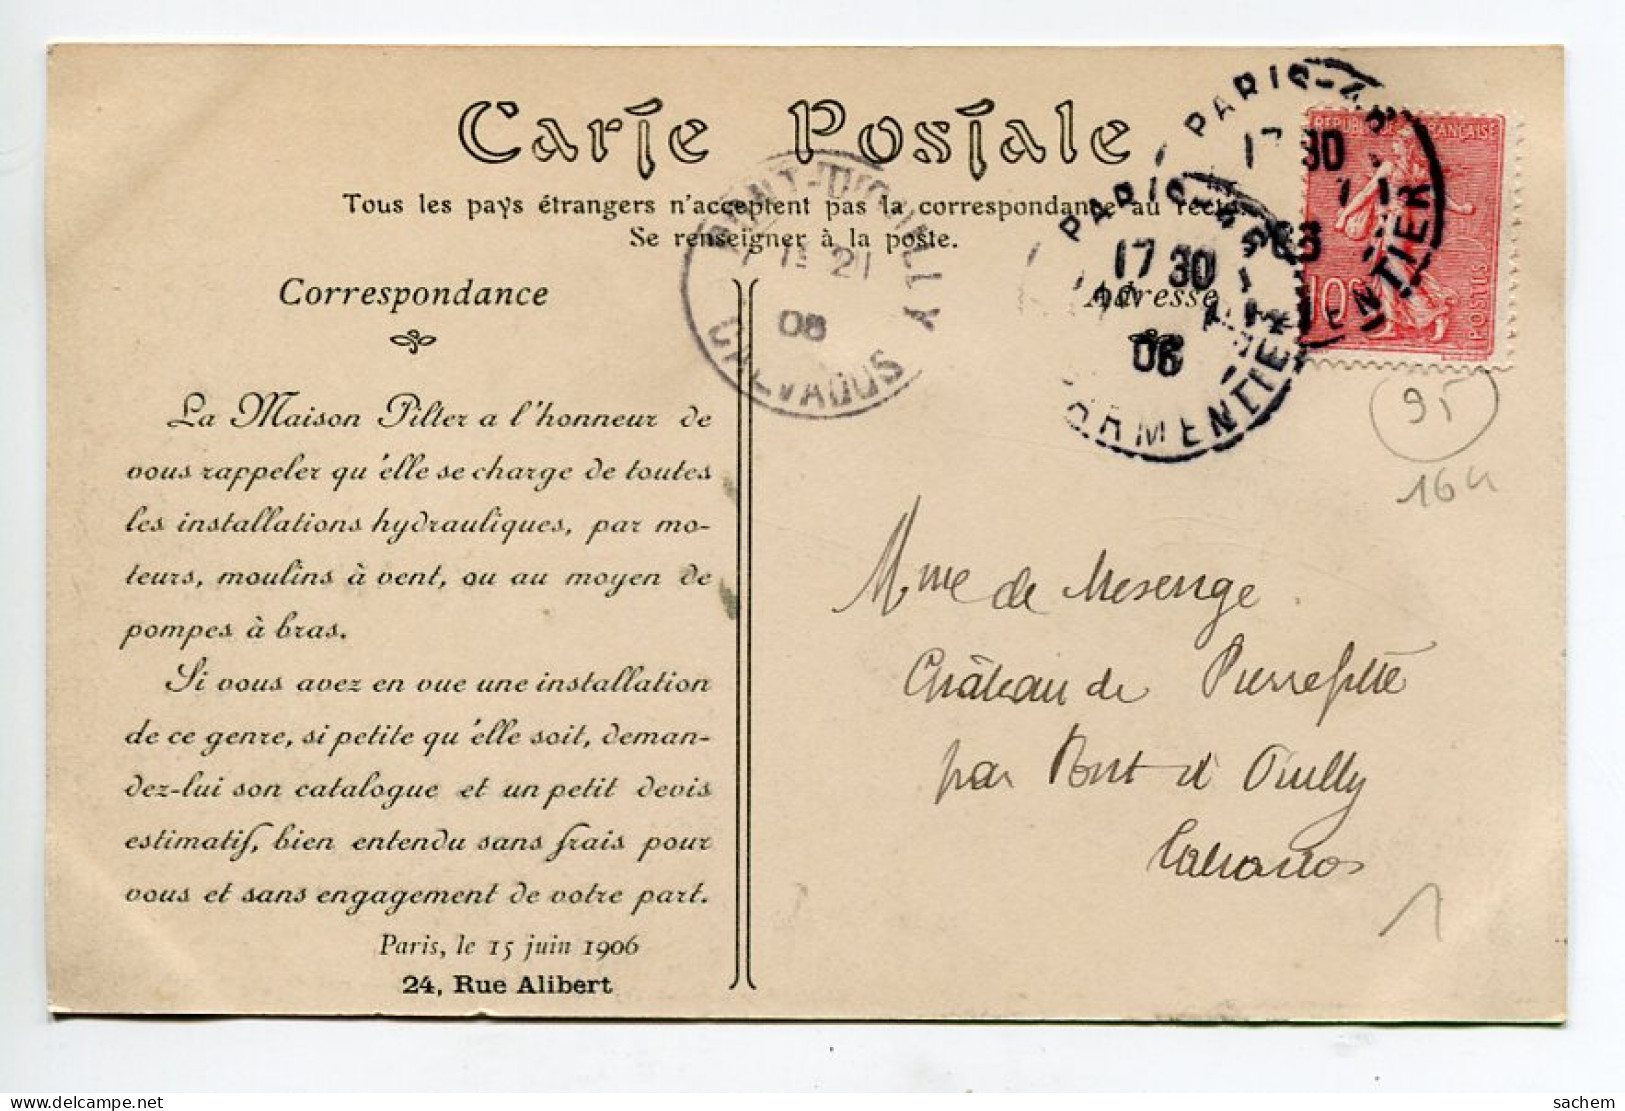 Carte Postale
Tous les pays étrangers n'acceptent pas la correspondance au recto.
Se renseigner à la poste.
Correspondance
Adresse
La Maison Pilter a l'honneur de
vous rappeler qu'elle se charge de toutes
les installations hydrauliques, par mo-
teurs, moulins à vent, ou au moyen de
pompes à bras.
Si vous avez en vue une installation
de ce genre, si petite qu'elle soit, deman-
dez-lui son catalogue et un petit devis
estimatif, bien entendu sans frais pour
vous et sans engagement de votre part.
Paris, le 15 juin 1906
24, Rue Alibert
PONT-D'OUILLY
21
06
CALVADOS
PARIS-48
17 30
06
PARMENTIER
PARIS-48
17 30
06
PARMENTIER
REPUBLIQUE FRANÇAISE
10c
POSTES
95
Mme de Mesenge
Château de Pierrefitte
par Pont d'Ouilly
Calvados
sachem